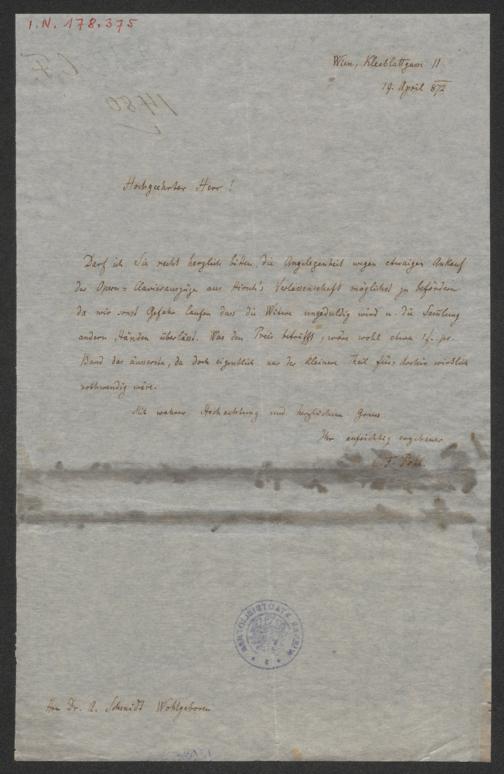 I.N. 178.375
Wien, Kleeblattgasse 11
19. April 872
Hochgeehrter Herr!
Darf ich Sie recht herzlich bitten, die Angelegenheit wegen etwaigen Ankauf
der Opern-Clavierauszüge aus Hirsch's Verlassenschaft möglichst zu befördern
da wir sonst Gefahr laufen dass die Witwe ungeduldig wird u. die Samlung
andern Händen überlässt. Was den Preis betrifft, wäre wohl etwa 1/. pr.
Band das äusserste, da doch eigentlich nur der kleinere Theil für's Archiv wirklich
nothwendig wäre.
Mit wahrer Hochachtung und herzlichem Gruss
Ihr aufrichtig ergebener
C. F. Pohl
Hrn Dr. A. Schmidt Wohlgeboren